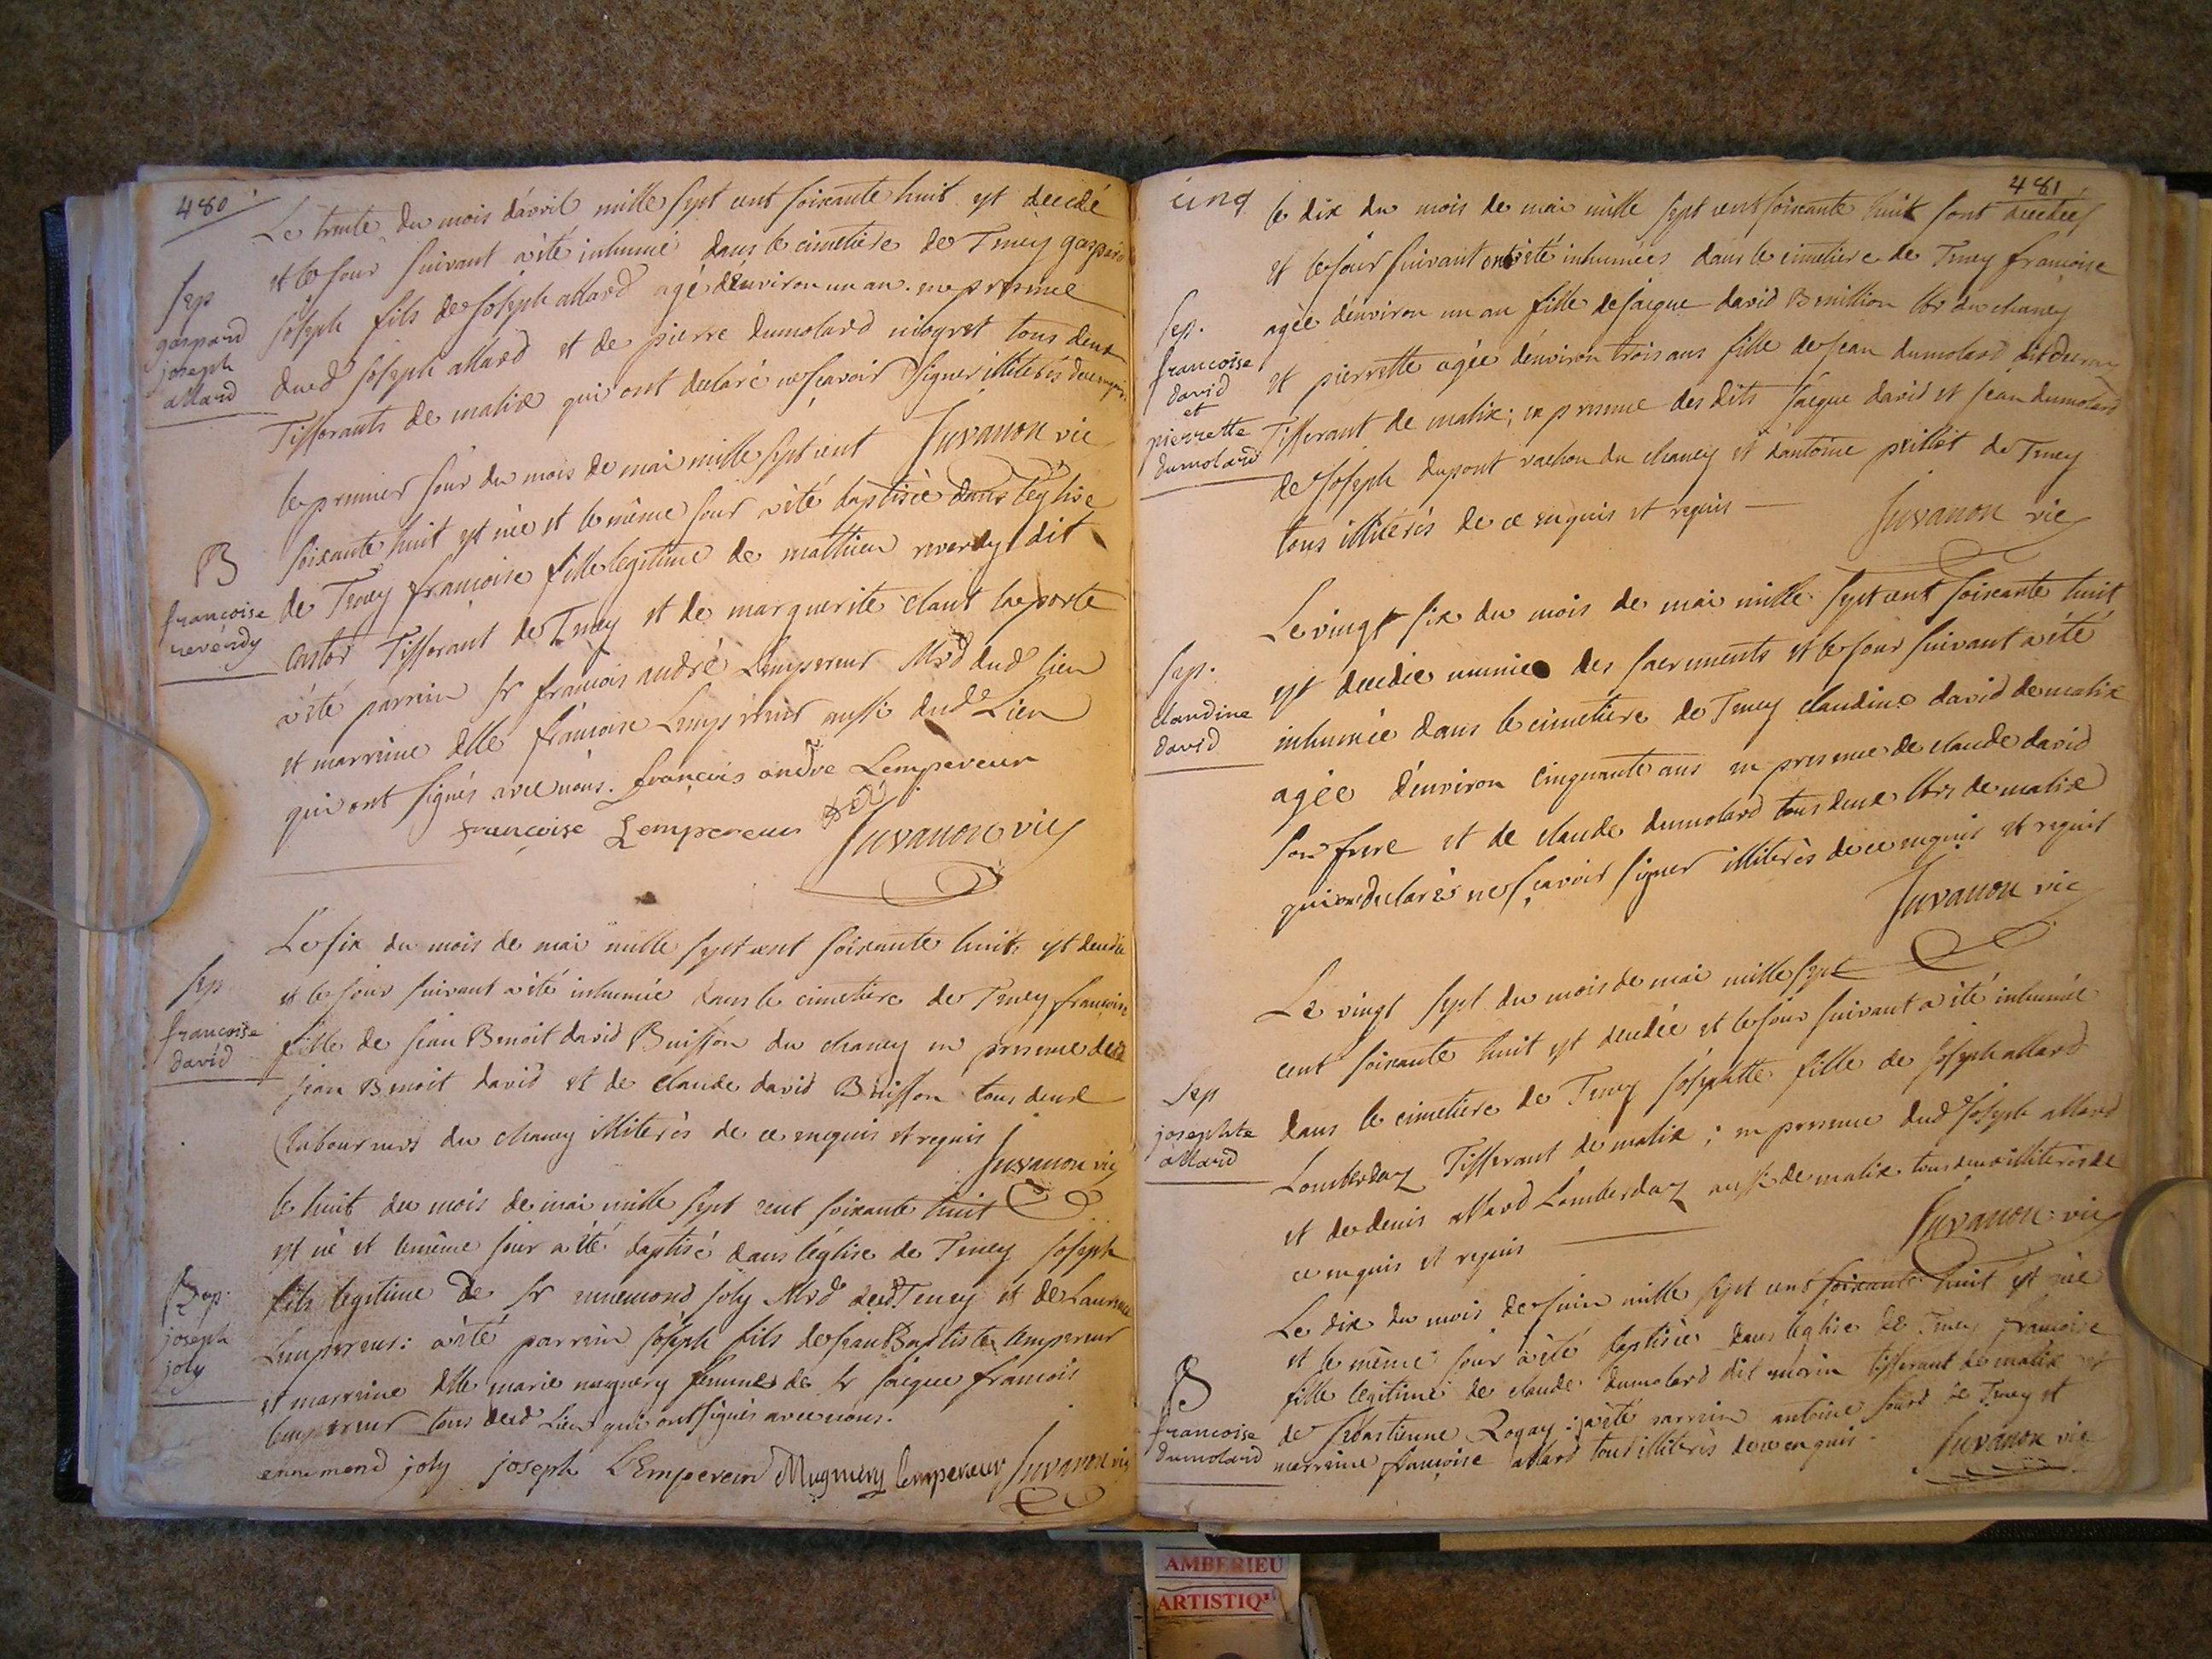 480
Le trente du mois d'avril mille sept cent soixante huit est decedé
et le jour suivant a été inhumé dans le cimetiere de Teney gaspard
joseph fils de joseph allard agé d'environ un an. en presence
dud joseph allard et de pierre dumolard niogret tous deux
Tisserants de malix qui ont declaré ne sçavoir signer illiterés de ce enquis
Juvanon vic
Sep
gaspard
joseph
allard
le premier jour du mois de mai mille sept cent
soixante huit est née et le même jour a été baptisée dans l'église
de Teney francoise fille legitime de mathieu reverdy dit
castor Tisserant de Teney et de marguerite clant laporte
a été parrein sr francois andré Lempereur Mrd dud lieu
et marreine dlle francoise Lempereur aussi dud Lieu
qui ont signés avec nous. françois andre Lempereur
françoise Lempereur Juvanon vic
B
francoise
reverdy
Le six du mois de mai mille sept cent soixante huit est decedée
et le jour suivant a été inhumée dans le cimetiere de Teney francoise
fille de jean Benoit david Buisson du chaney en presence dud
jean Benoit david et de claude david Buisson tous deux
laboureurs du chaney illiterés de ce enquis et requis
Juvanon vic
Sep
francoise
david
le huit du mois de mai mille sept cent soixante huit
est né et le même jour a été baptisé dans l'église de Teney joseph
fils legitime de sr ennemond joly Mrd dud Teney et de Laurence
Lempereur: a été parrein joseph fils de jean Baptiste lempereur
et marreine dlle marie mugnery femme de sr jacque francois
lempereur tous dud Lieu qui ont signés avec nous.
ennemond joly joseph L'Empereur Mugniery lempereur Juvanon vic
Bap.
joseph
joly
481
cinq
le dix du mois de mai mille sept cent soixante huit sont decedées
et le jour suivant ont été inhumées dans le cimetiere de Teney francoise
agée d'environ un an fille de jacque david Bmillion lbr du chaney
et pierrette agée d'environ trois ans fille de jean dumolard dit
Tisserant de malix; en presence des dits jacque david et jean dumolard
de joseph dupont vachon du chaney et d'antoine prillet de Teney
tous illiterés de ce enquis et requis
Juvanon vic
Sep.
francoise
david
et
pierrette
dumolard
Le vingt six du mois de mai mille sept cent soixante huit
est decedée munie des sacrements et le jour suivant a été
inhumée dans le cimetiere de Teney claudine david de malix
agée d'environ cinquante ans en presence de claude david
son frere et de claude dumolard tous deux lbrs de malix
qui ont declarés ne sçavoir signer illiterés de ce enquis et requis
Juvanon vic
Sep.
claudine
david
Le vingt sept du mois de mai mille sept
cent soixante huit est decedée et le jour suivant a été inhumée
dans le cimetiere de Teney josephtte fille de joseph allard
Lomberdaz Tisserant de malix; en presence dud joseph allard
et de denis allard Lomberdaz aussi de malix tous deux illiterés de
ce enquis et requis
Juvanon vic
Sep
josephte
allard
Le dix du mois de juin mille sept cent soixante huit est née
et le même jour a été baptisée dans l'église de Teney francoise
fille legitime de claude dumolard dit morin tisserant de malix et
de sebastienne Rogay: a été parrein antoine de Teney et
marreine francoise allard tous illiterés de ce enquis.
Juvanon vic
B
francoise
dumolard
AMBERIEU
ARTISTIQ